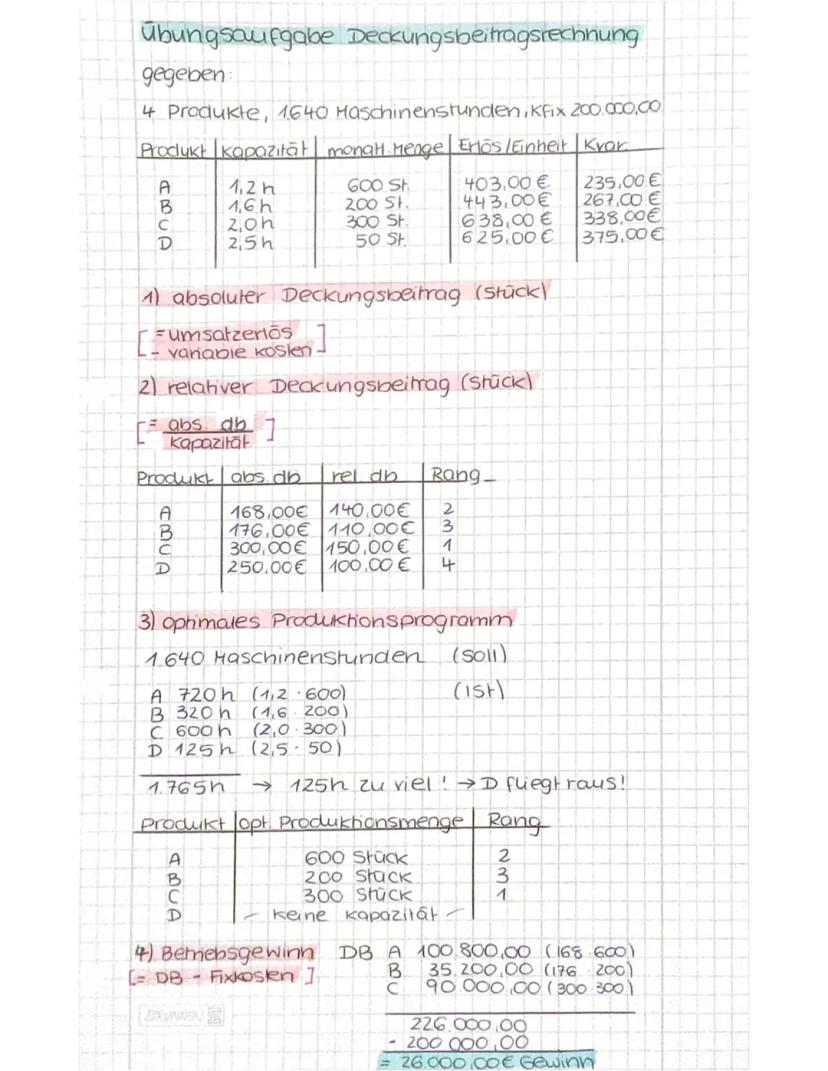 Übungsaufgabe Deckungsbeitragsrechnung
gegeben:
4 Produkte, 1640 Maschinenstunden, Kfix 200.000,00
Produkt | Kapazität | monatl. Menge | Erlös/Einheit | Kvar
A 1,2h 600 St. 403,00 € 235,00 €
B 1,6h 200 St. 443,00 € 267,00 €
C 2,0h 300 St. 638,00 € 338,00€
D 2,5h 50 St. 625,00 € 375,00€
1) absoluter Deckungsbeitrag (Stück)
[ = umsatzerlös
- variable kosten ]
2) relativer Deckungsbeitrag (Stück)
[ = abs. db
Kapazität ]
Produkt | abs. db | rel. db | Rang
A 168,00€ 140,00€ 2
B 176,00€ 110,00€ 3
C 300,00€ 150,00€ 1
D 250,00€ 100,00€ 4
3) optimales Produktionsprogramm
1.640 Maschinenstunden (soll)
A 720h (1,2 · 600) (ist)
B 320h (1,6 · 200)
C 600h (2,0 · 300)
D 125h (2,5 · 50)
1.765h → 125h zu viel! → D fliegt raus!
Produkt | opt. Produktionsmenge | Rang
A 600 Stück 2
B 200 Stück 3
C 300 Stück 1
D - keine kapazität -
4) Betriebsgewinn DB A 100.800,00 (168 · 600)
[= DB - Fixkosten ] B 35.200,00 (176 · 200)
C 90.000,00 (300 · 300)
BRUNNEN
226.000,00
- 200.000,00
= 26.000,00€ Gewinn